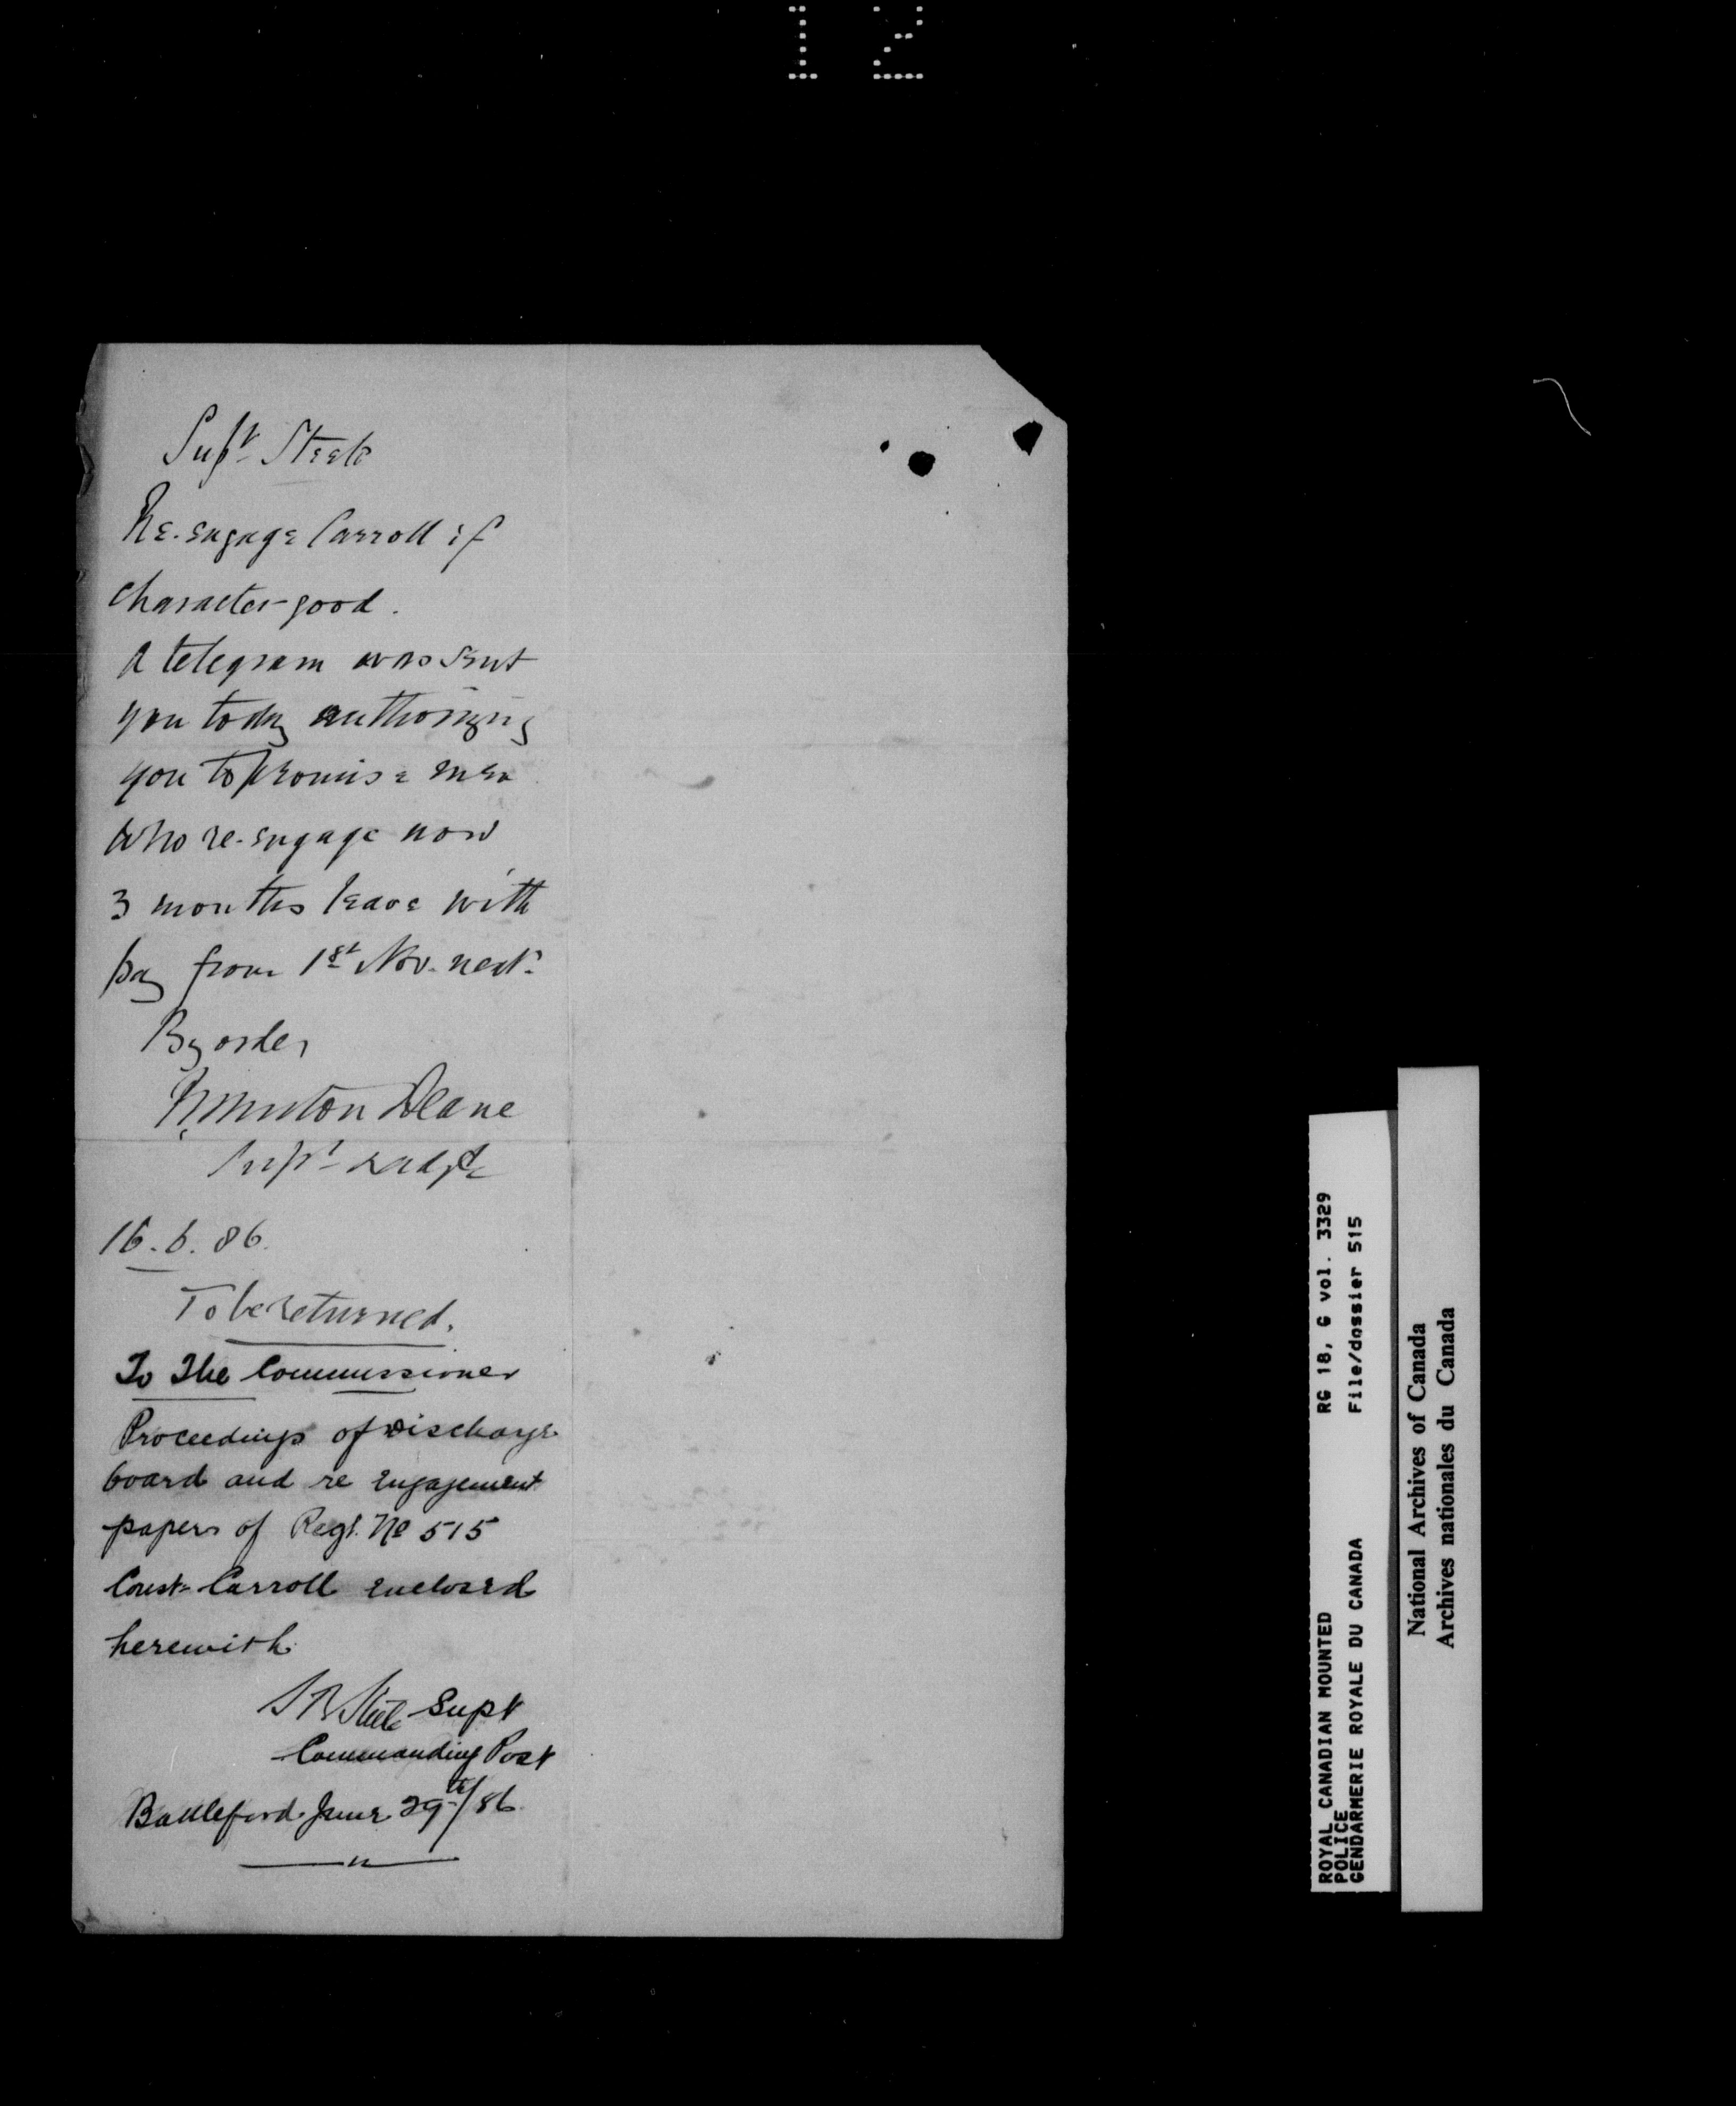 12
Supt Steele
Re-engage Carroll if
character good.
A telegram was sent
you today authorizing
you to promise men
who re-engage now
3 months leave with
pay from 1st Nov. next.
By order
R Burton Deane
Supt & adjt
16.6.86.
To be returned.
To The Commissioner
Proceedings of Discharge
board and re engagement
papers of Regt. No 515
Const. Carroll enclosed
herewith.
S B Steele Supt
Commanding Post
Battleford June 29th/86
ROYAL CANADIAN MOUNTED
POLICE
GENDARMERIE ROYALE DU CANADA
RG 18, G vol. 3329
File/dossier 515
National Archives of Canada
Archives nationales du Canada